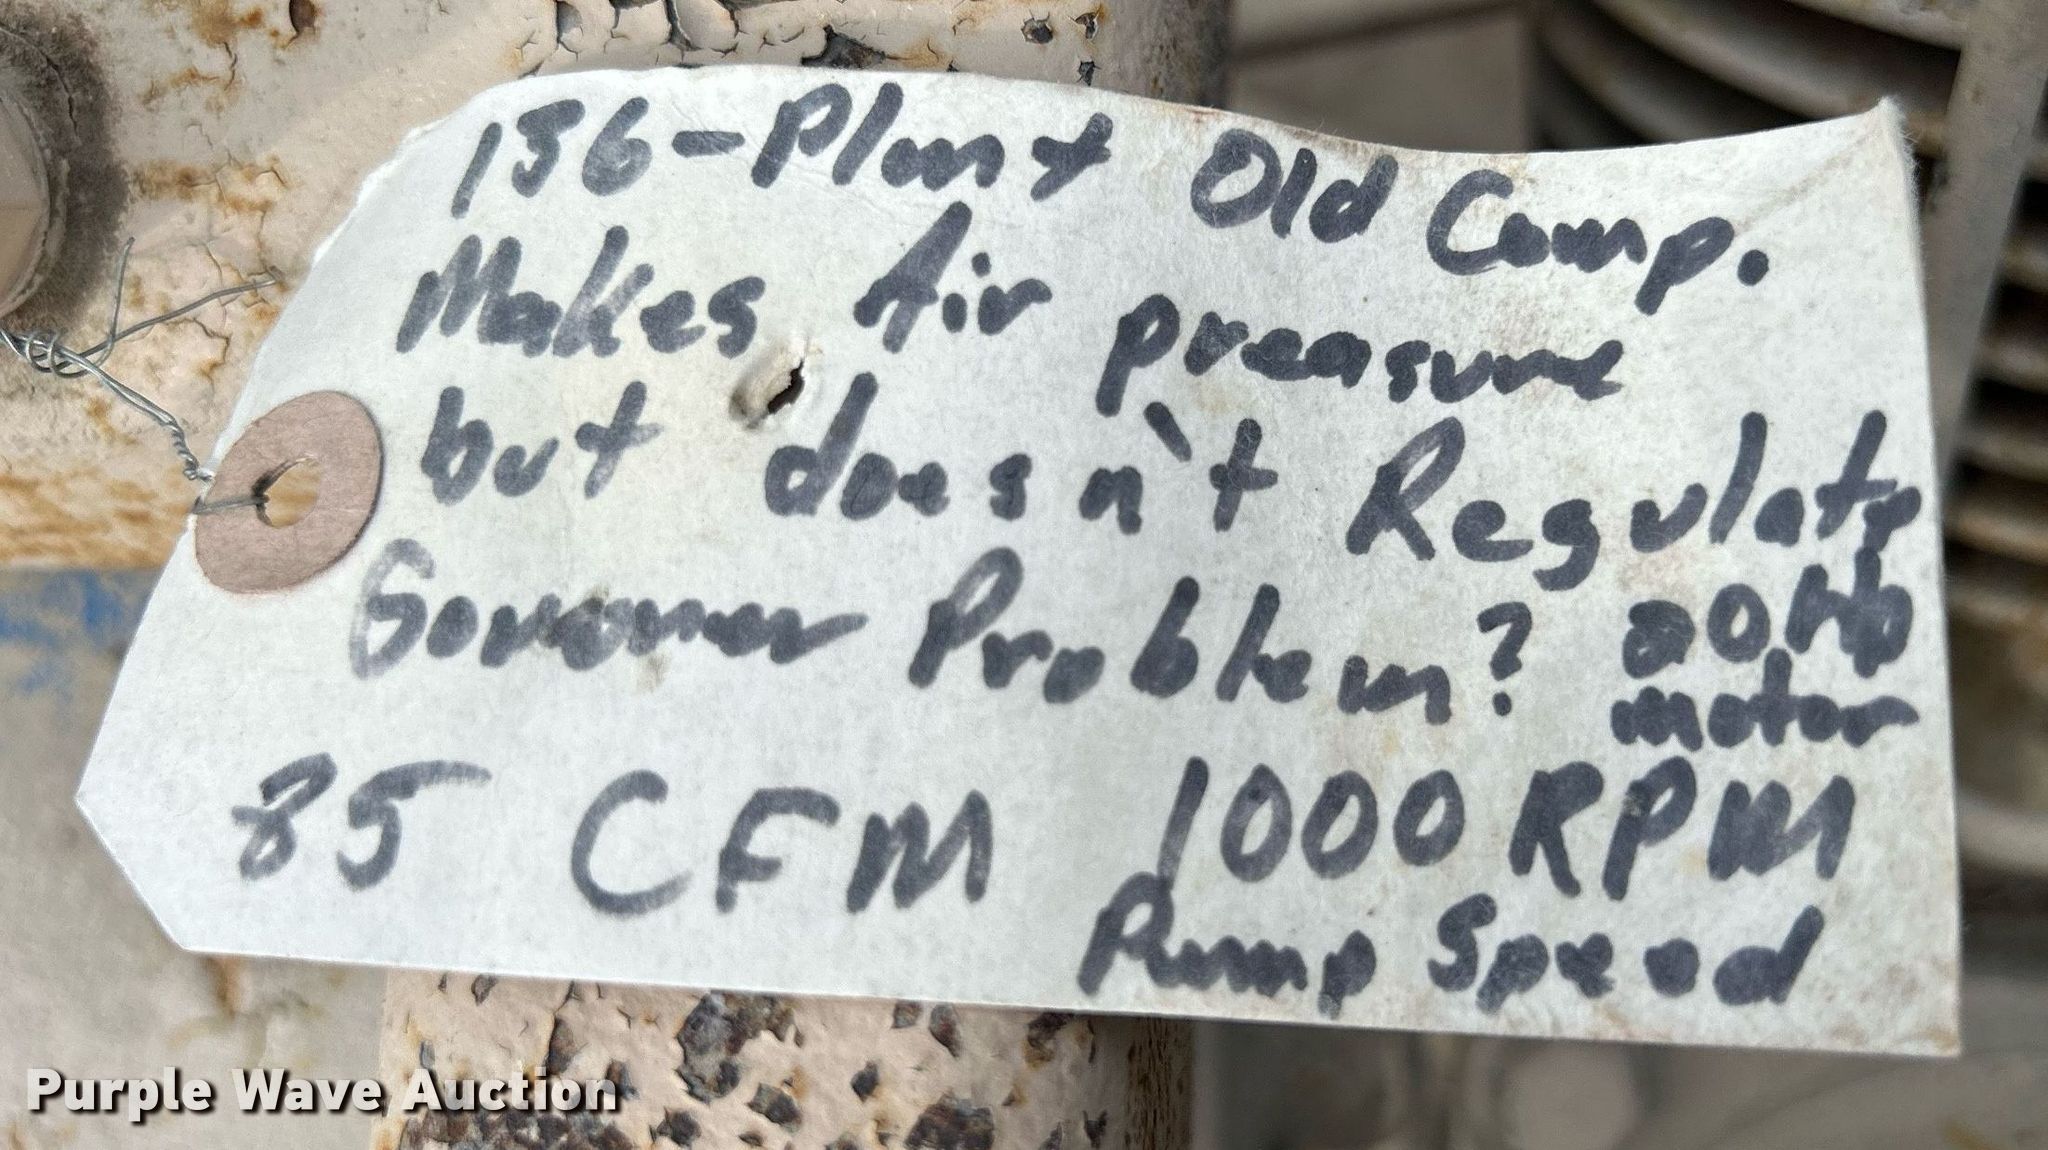 136-Plant Old Comp.
Makes Air preasure
but doesn't Regulate
Govenner Problem? 20 Hp
motor
85 CFM 1000 RPM
Pump Speed
Purple Wave Auction